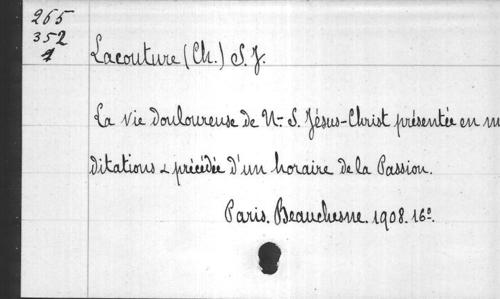 265
352
1
Lacouture (Ch.) S. J.
La vie douloureuse de N.- S. Jésus-Christ présentée en m
ditations & précédée d'un horaire de la Passion.
Paris. Beauchesne. 1908. 16º.